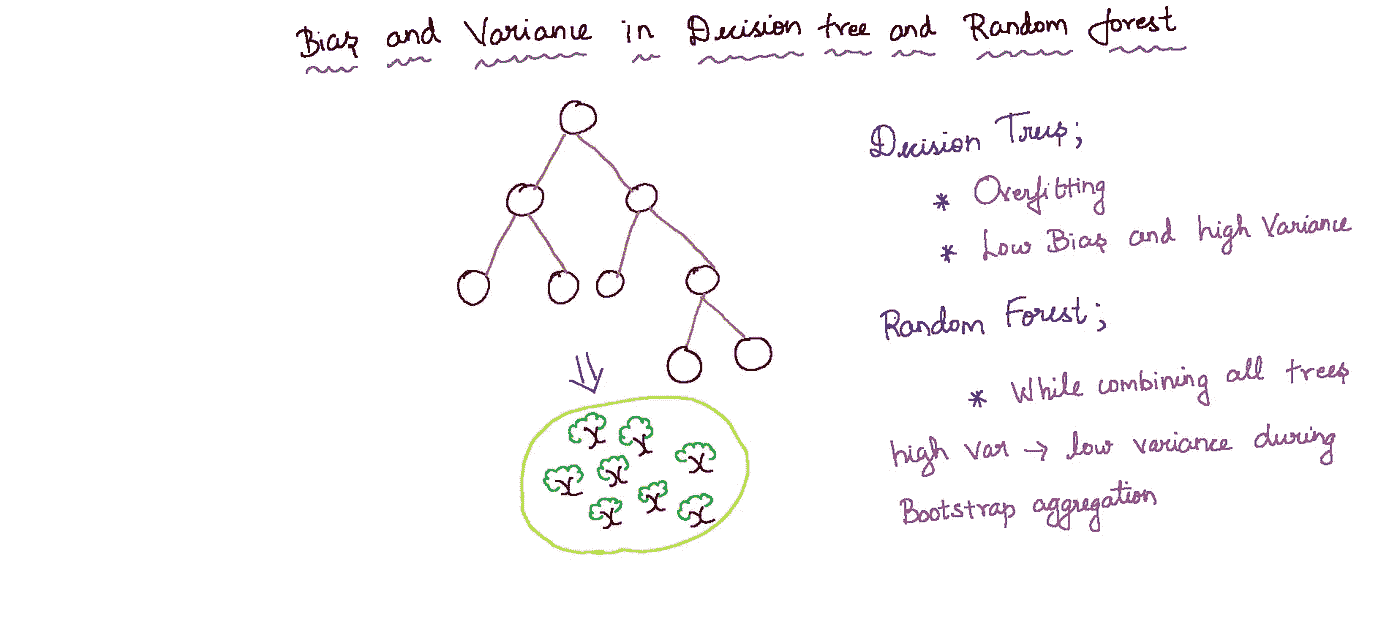 Bias and Variance in Decision tree and Random forest
Decision Trees;
* Overfitting
* Low Bias and high Variance
Random Forest;
* While combining all trees
high var → low variance during
Bootstrap aggregation